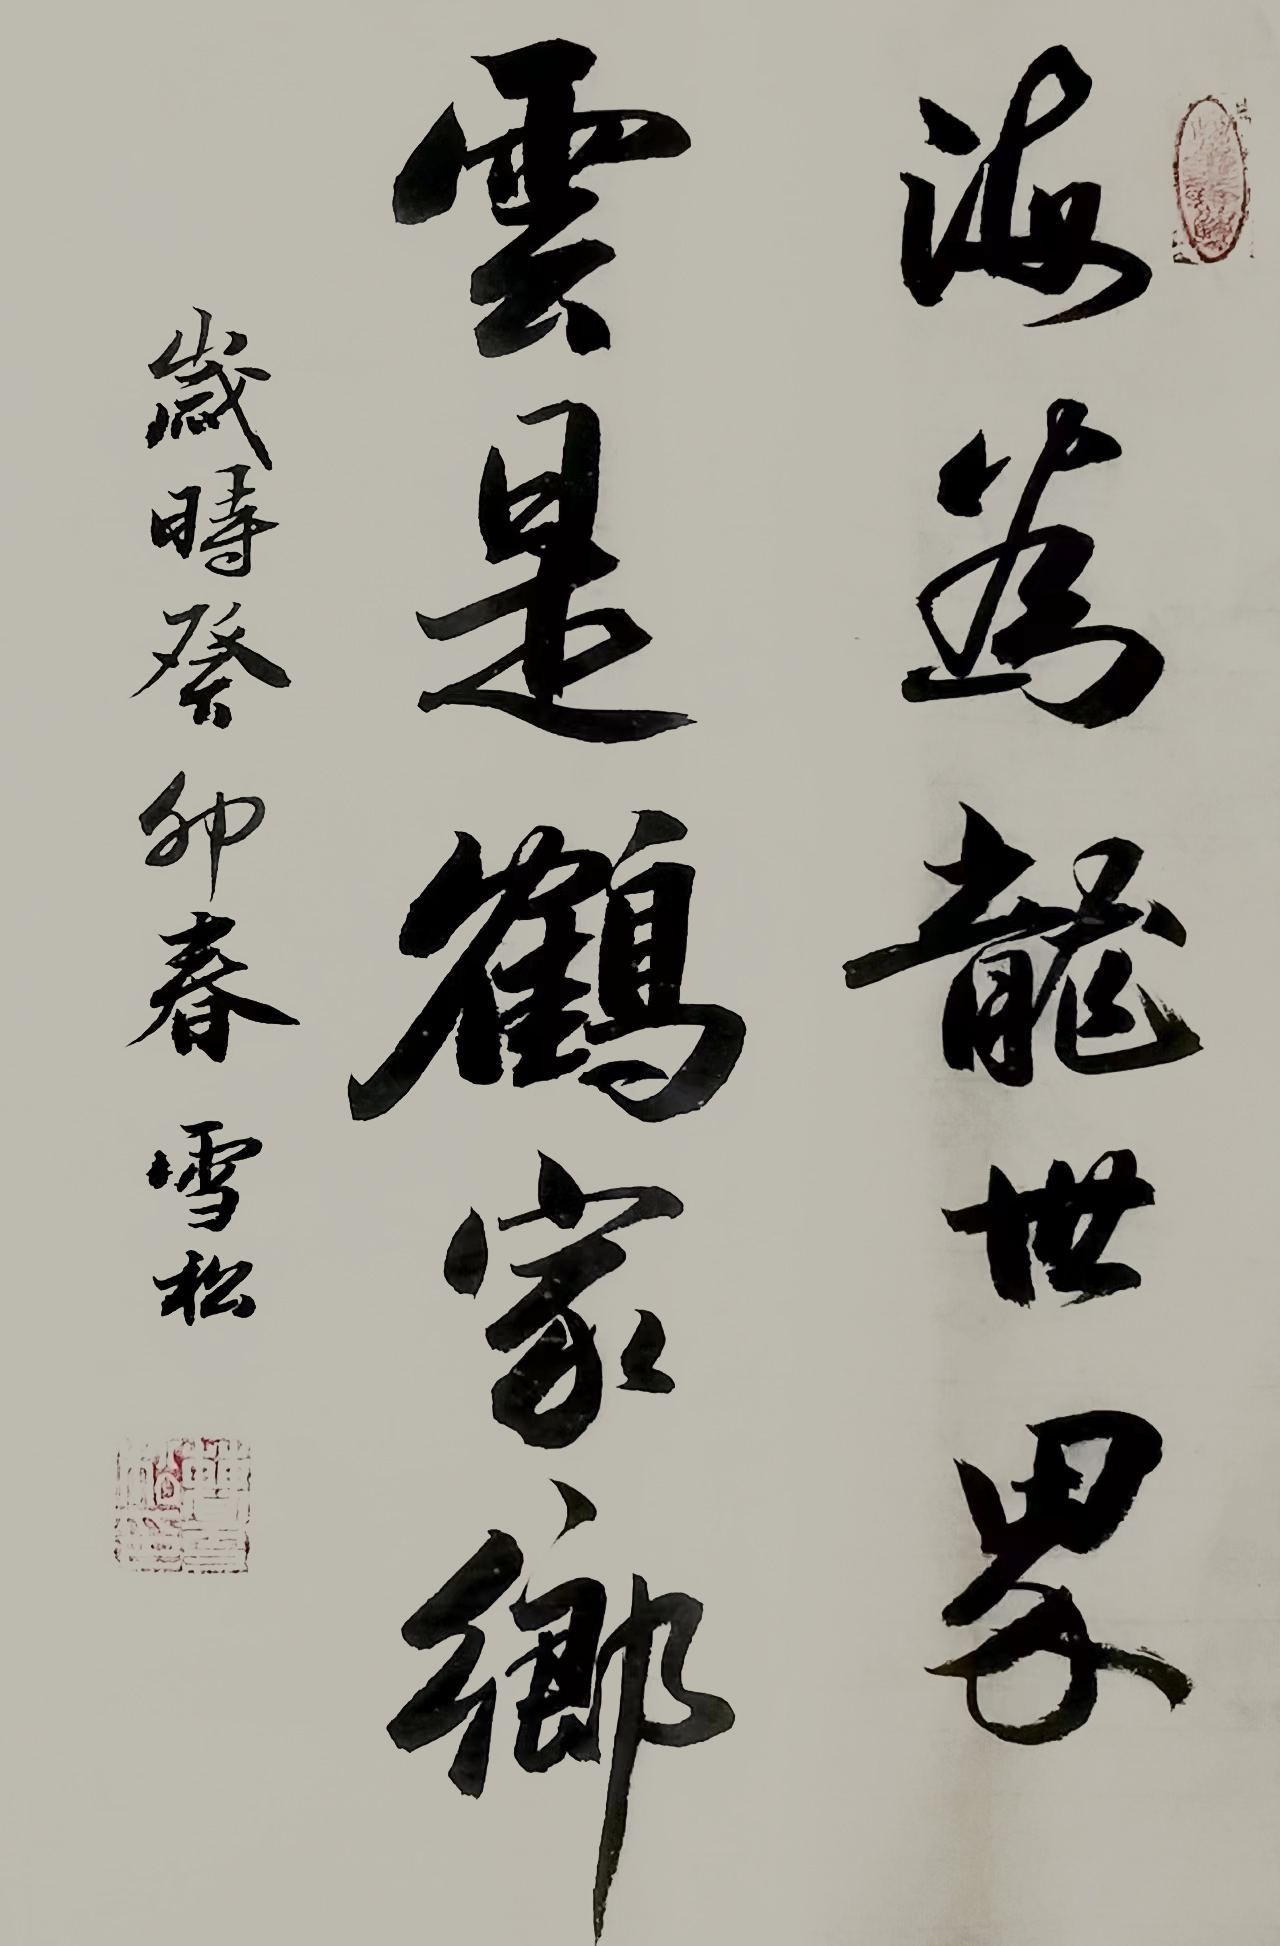 海為龍世界
雲是鶴家鄉
歲時癸卯春 雪松